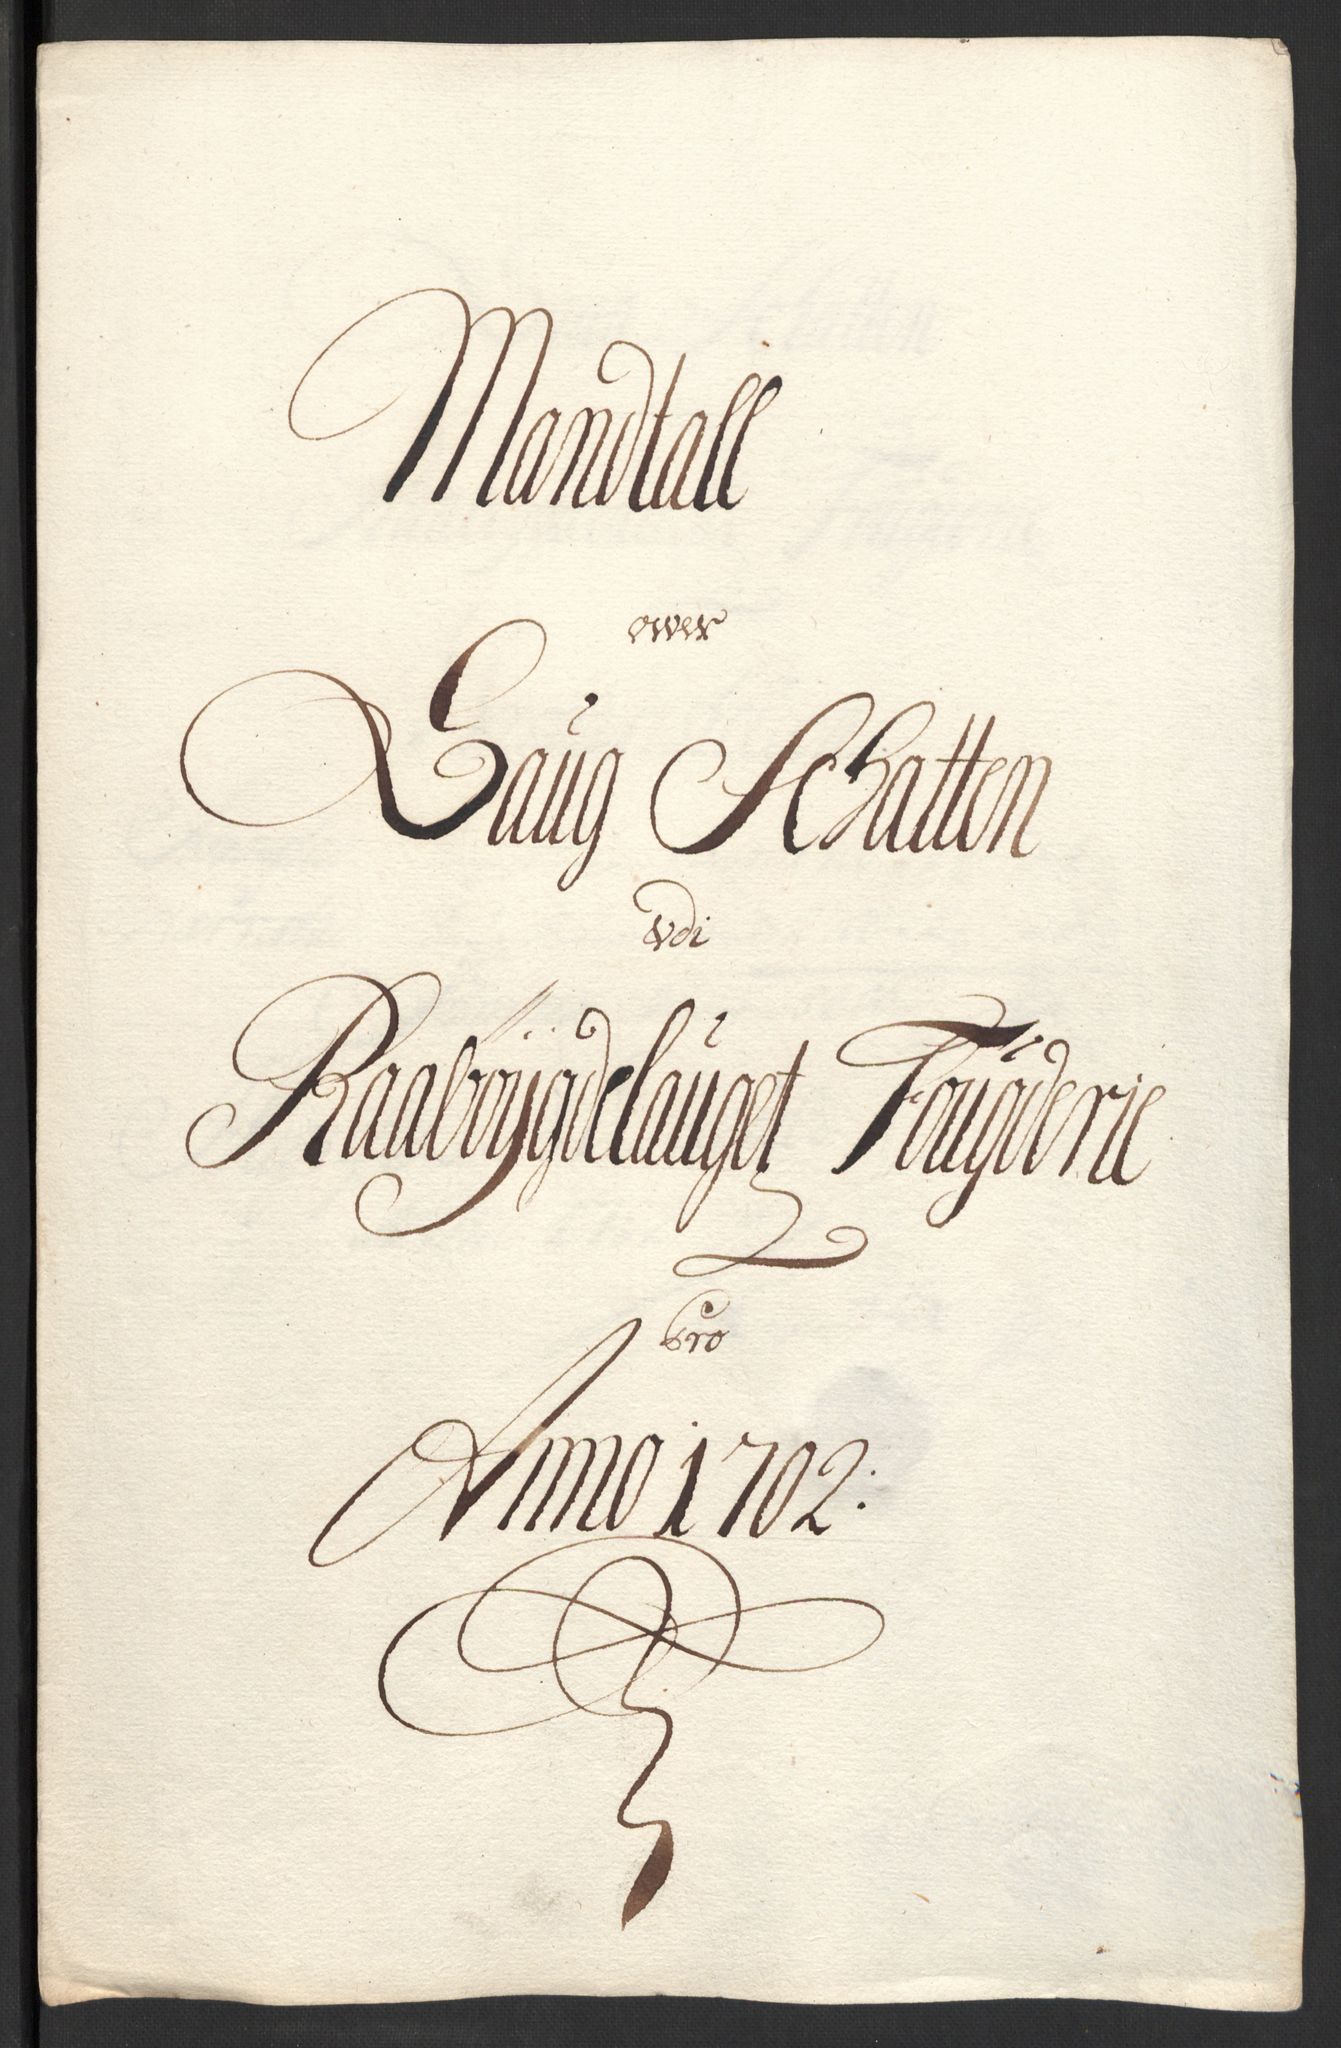 Mandtall
ower
Laug Schatten
udi
Raabÿgdelauget Fougderie
pro
Anno 1702: